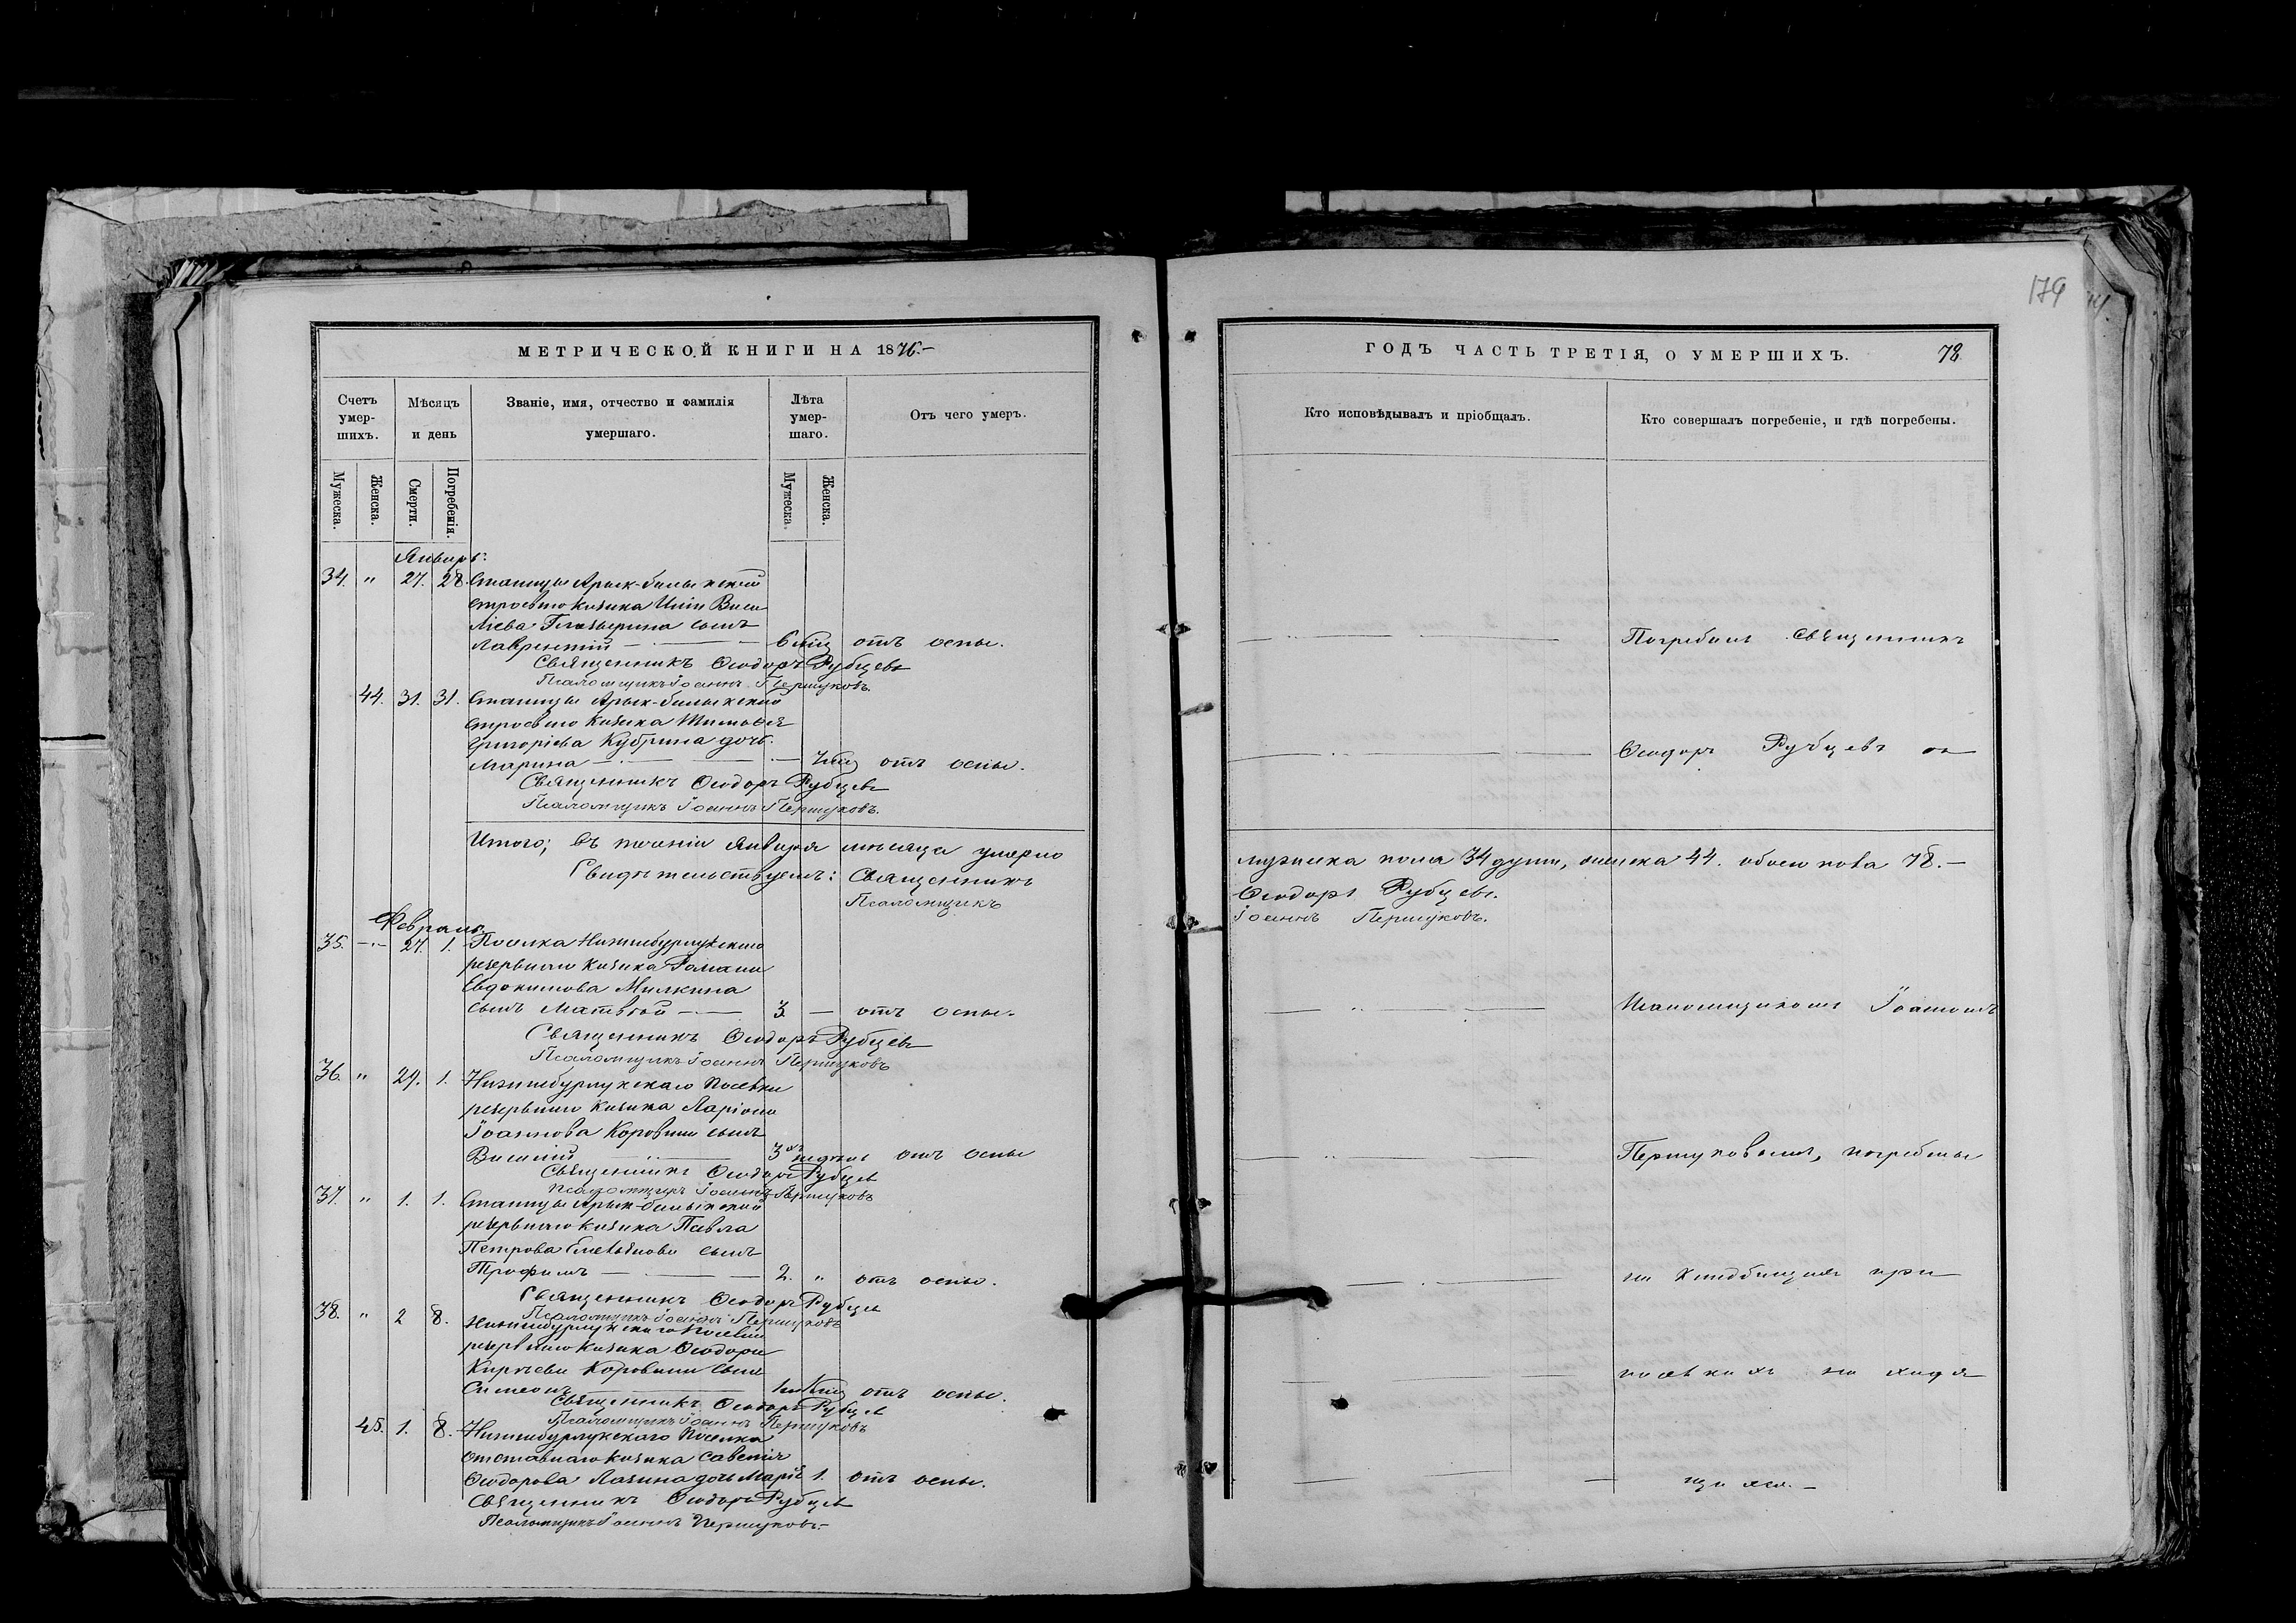 179
МЕТРИЧЕСКОЙ КНИГИ НА 1876.-
Счетъ умер-шихъ.
Мѣсяцъ и день
Званіе, имя, отчество и фамилія умершаго.
Лѣта умер-шаго.
Отъ чего умеръ.
Мужеска.
Женска.
Смерти.
Погребенія.
Мужеска.
Женска.
Январь.
34. " 27. 28. Станицы Арык-балыкской
строеваго козака Иліи Васи
ліева Глазырина сынъ
Лаврентій 6 мѣц отъ оспы.
Священникъ Ѳеодоръ Рубцевъ
Псаломщикъ Іоаннъ Першуковъ.
44. 31. 31. Станицы Арык-балыкской
строеваго козака Тимоѳея
Григоріева Кубрина дочь
Марина мѣц отъ оспы.
Священникъ Ѳеодоръ Рубцевъ
Псаломщикъ Іоаннъ Першуковъ.
Итого; въ теченіи Января мѣсяца умерло
Свидѣтельствуемъ: Священникъ
Псаломщикъ
Февраль
35. 27. 1. Поселка Нижнебурлукскаго
резервнаго козака Романа
Евдокимова Милкина
сынъ Матвѣй 3 — отъ оспы.
Священникъ Ѳеодоръ Рубцевъ
Псаломщикъ Іоаннъ Першуковъ
36. " 29. 1. Нижнебурлукскаго поселка
резервнаго козака Ларіона
Іоаннова Коровина сынъ
Василій 3хъ недѣль отъ оспы
Священникъ Ѳеодоръ Рубцевъ
Псаломщикъ Іоаннъ Першуковъ
37. " 1. 1. Станицы Арык-балыкской
резервнаго козака Павла
Петрова Емельянова сынъ
Трофимъ 2. " отъ оспы.
Священникъ Ѳеодоръ Рубцевъ
Псаломщикъ Іоаннъ Першуковъ
38. " 2 8. Нижнебурлукскаго поселка
резервнаго козака Ѳеодора
Коровина сынъ
Симеонъ отъ оспы.
Священникъ Ѳеодоръ Рубцевъ
Псаломщикъ Іоаннъ Першуковъ
45. 1. 8. Нижнебурлукскаго поселка
отставнаго козака Саветія
Ѳеодорова Лазина дочь Марія 1. отъ оспы.
Священникъ Ѳеодоръ Рубцевъ
Псаломщикъ Іоаннъ Першуковъ.-
ГОДЪ ЧАСТЬ ТРЕТІЯ, О УМЕРШИХЪ. 78
Кто исповѣдывалъ и пріобщалъ.
Кто совершалъ погребеніе, и гдѣ погребены.
Погребалъ Священникъ
Ѳеодоръ Рубцевъ съ
мужеска пола 34 души, женска 44. обоего пола 78.-
Ѳеодоръ Рубцевъ.
Іоаннъ Першуковъ.
Псаломщикомъ Іоанномъ
Першуковымъ, погребены
на кладбищахъ при
поселкахъ находя
щихся.-